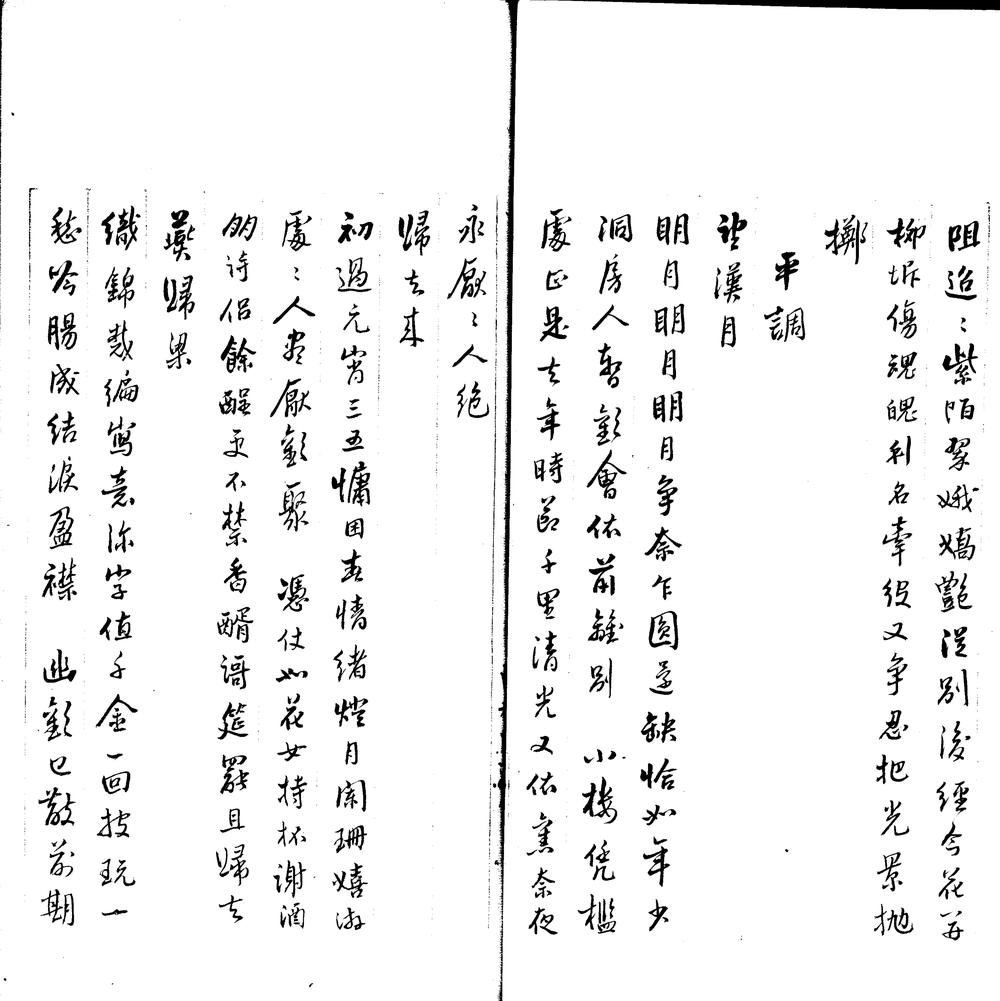 阻迢〻紫陌翠娥嬌艷從別後經今花開
柳坼傷魂魄利名牽役又爭忍把光景拋
擲
平調
望漢月
明月明月明月爭奈乍圓還缺恰如年少
洞房人暫歡會依前離別　小樓凭檻
處正是去年時節千里清光又依舊奈夜
永厭〻人絕
歸去來
初過元宵三五慵困春情緒燈月闌珊嬉游
處〻人盡厭歡聚　憑仗如花女持杯謝酒
朋詩侶餘酲更不禁香醑謌筵罷且歸去
燕歸梁
織錦裁編寫意深字值千金一回披玩一
愁吟腸成結淚盈襟　幽歡已散前期